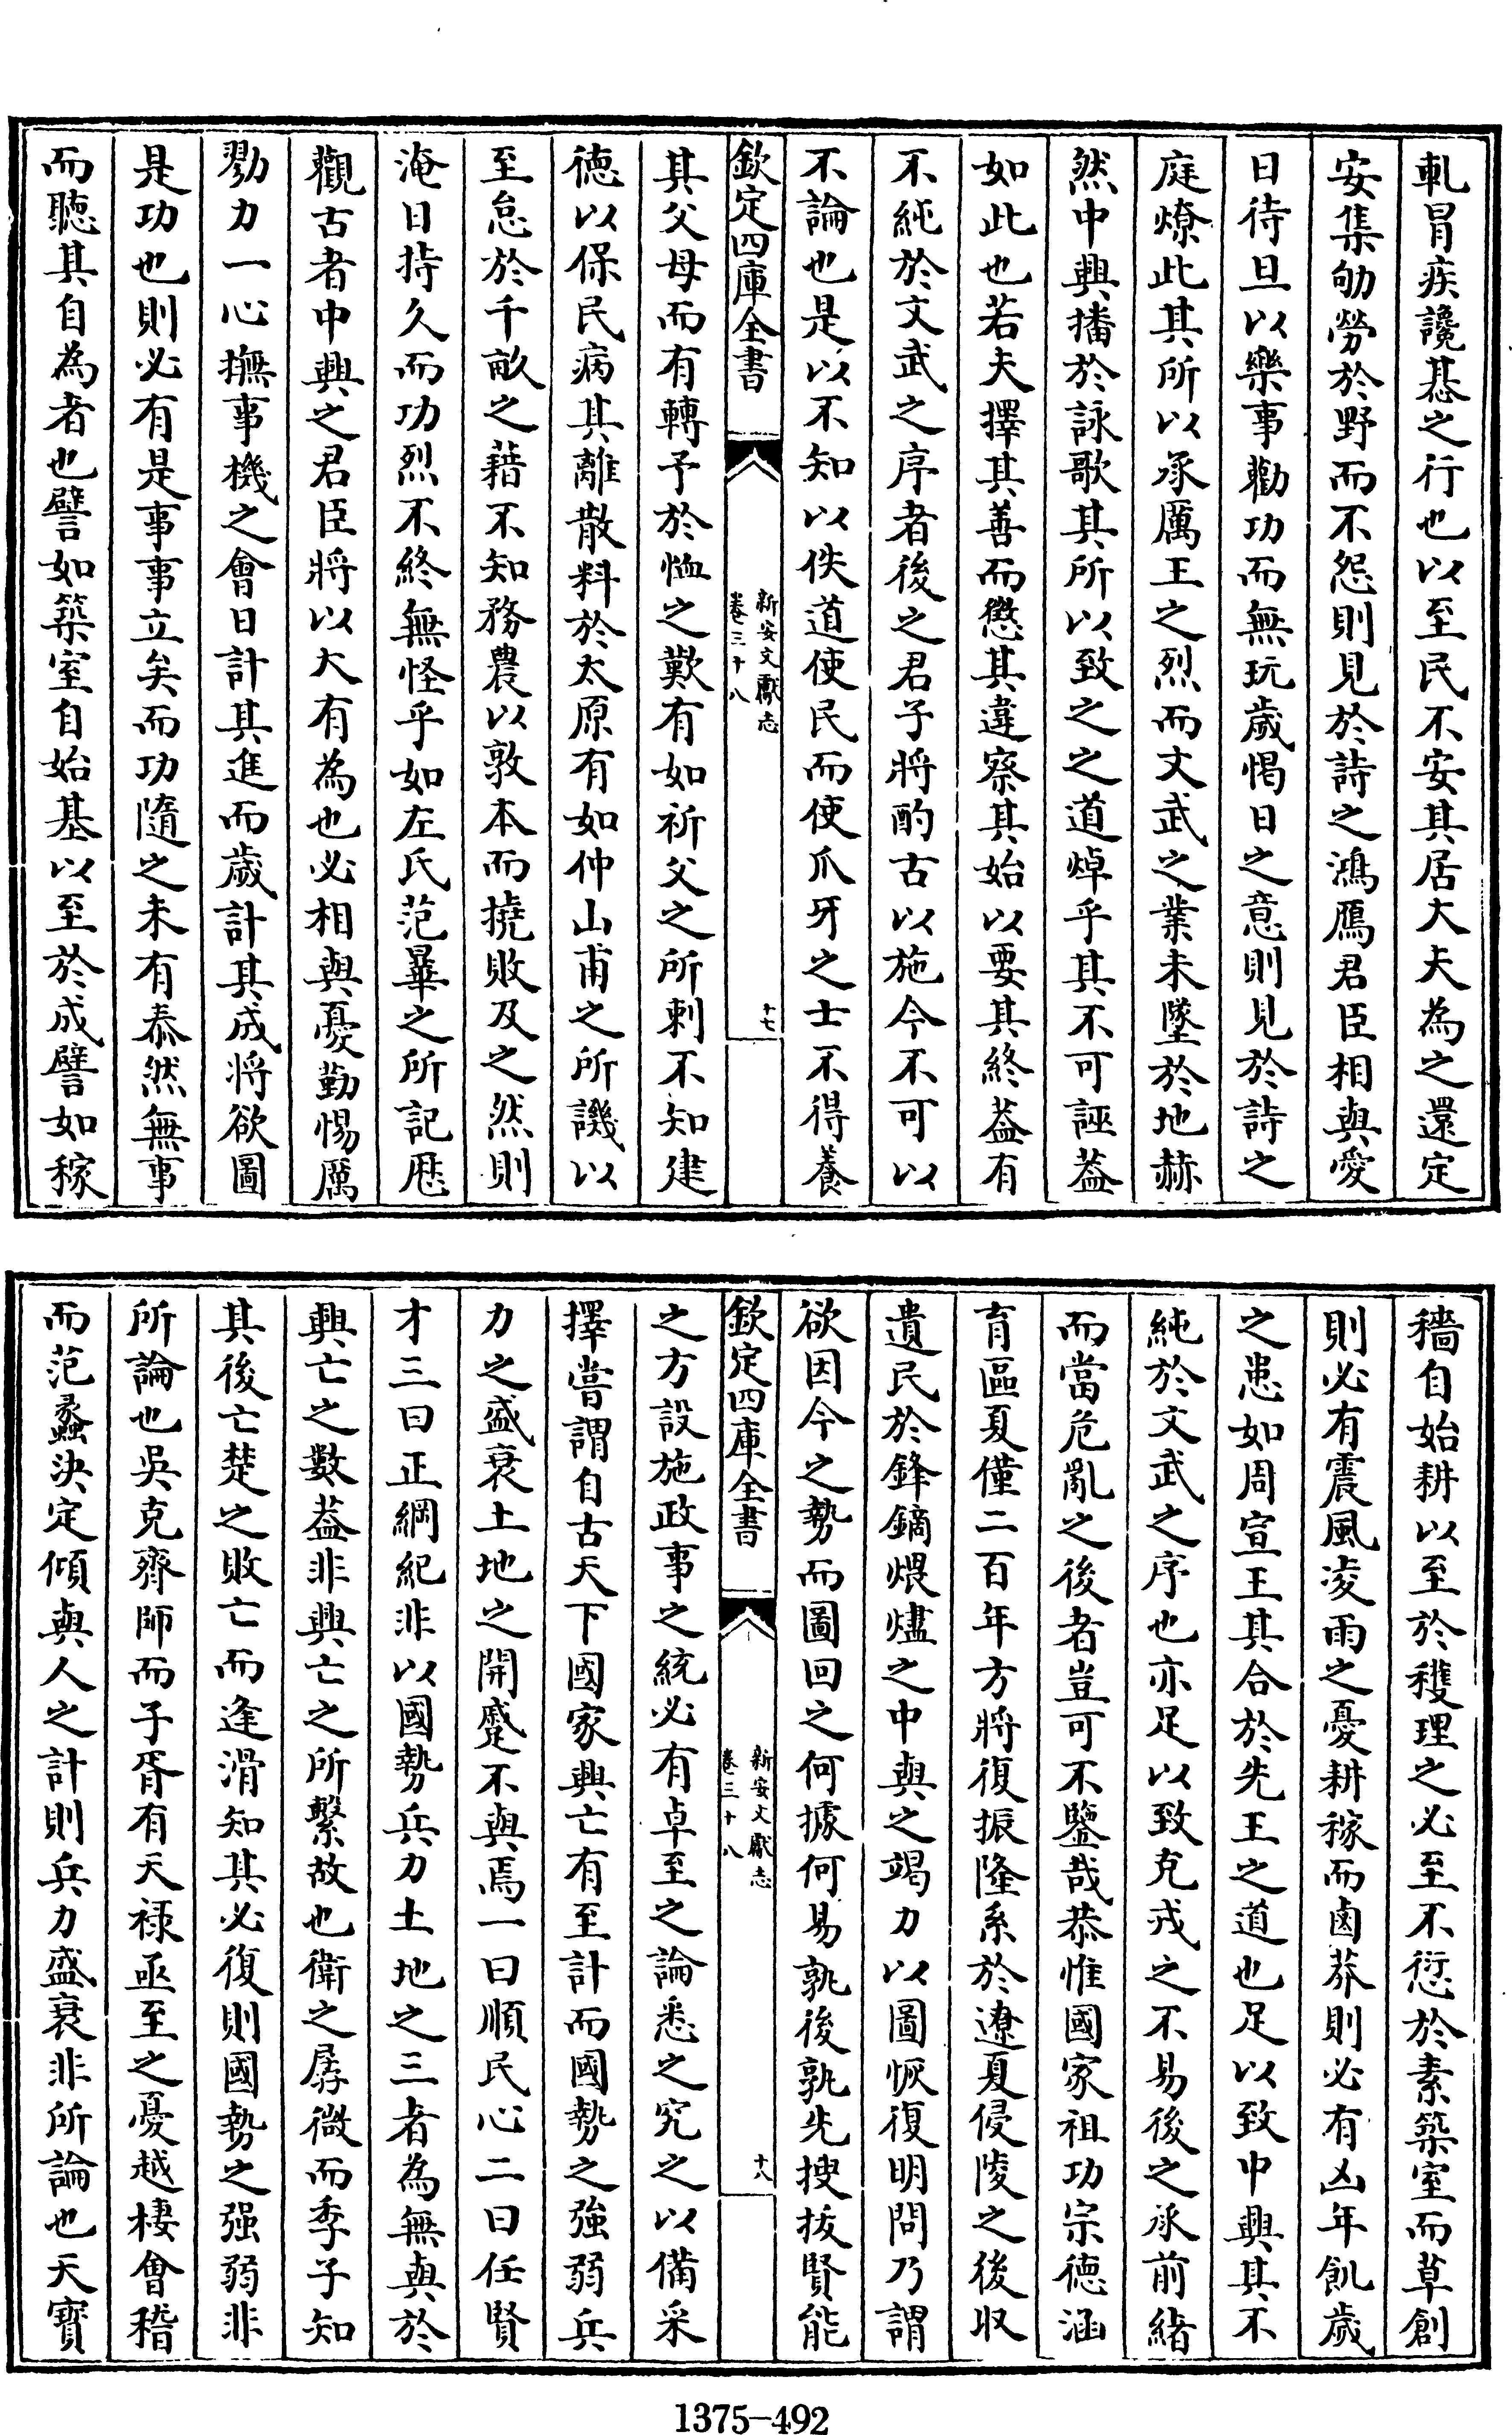 軋冒疾讒惎之行也以至民不安其居大夫為之還定
安集劬勞於野而不怨則見於詩之鴻鴈君臣相與愛
日待旦以樂事勸功而無玩歲愒日之意則見於詩之
庭燎此其所以承厲王之烈而文武之業未墜於地赫
然中興播於詠歌其所以致之之道焯乎其不可誣葢
如此也若夫擇其善而懲其違察其始以要其終葢有
不純於文武之序者後之君子將酌古以施今不可以
不論也是以不知以佚道使民而使爪牙之士不得養
欽定四庫全書
新安文獻志
卷三十八
十七
其父母而有轉予於恤之歎有如祈父之所刺不知建
德以保民病其離散料於太原有如仲山甫之所譏以
至怠於千畝之藉不知務農以敦本而撓敗及之然則
淹日持久而功烈不終無怪乎如左氏范曄之所記厯
觀古者中興之君臣將以大有為也必相與憂勤惕厲
勠力一心撫事機之會日計其進而歲計其成將欲圖
是功也則必有是事事立矣而功隨之未有泰然無事
而聽其自為者也譬如築室自始基以至於成譬如稼
穡自始耕以至於穫理之必至不愆於素築室而草創
則必有震風凌雨之憂耕稼而鹵莽則必有凶年飢歲
之患如周宣王其合於先王之道也足以致中興其不
純於文武之序也亦足以致克戎之不易後之承前緒
而當危亂之後者豈可不鑒哉恭惟國家祖功宗德涵
育區夏僅二百年方將復振隆系於遼夏侵陵之後收
遺民於鋒鏑煨燼之中與之竭力以圖恢復明問乃謂
欲因今之勢而圖回之何據何易孰後孰先搜拔賢能
欽定四庫全書
新安文獻志
卷三十八
十八
之方設施政事之統必有卓至之論悉之究之以備采
擇嘗謂自古天下國家興亡有至計而國勢之強弱兵
力之盛衰土地之開蹙不與焉一曰順民心二曰任賢
才三曰正綱紀非以國勢兵力土地之三者為無與於
興亡之數葢非興亡之所繫故也衛之孱微而季子知
其後亡楚之敗亡而逢滑知其必復則國勢之强弱非
所論也吳克齊師而子胥有天祿亟至之憂越棲會稽
而范蠡決定傾與人之計則兵力盛衰非所論也天寶
1375—492